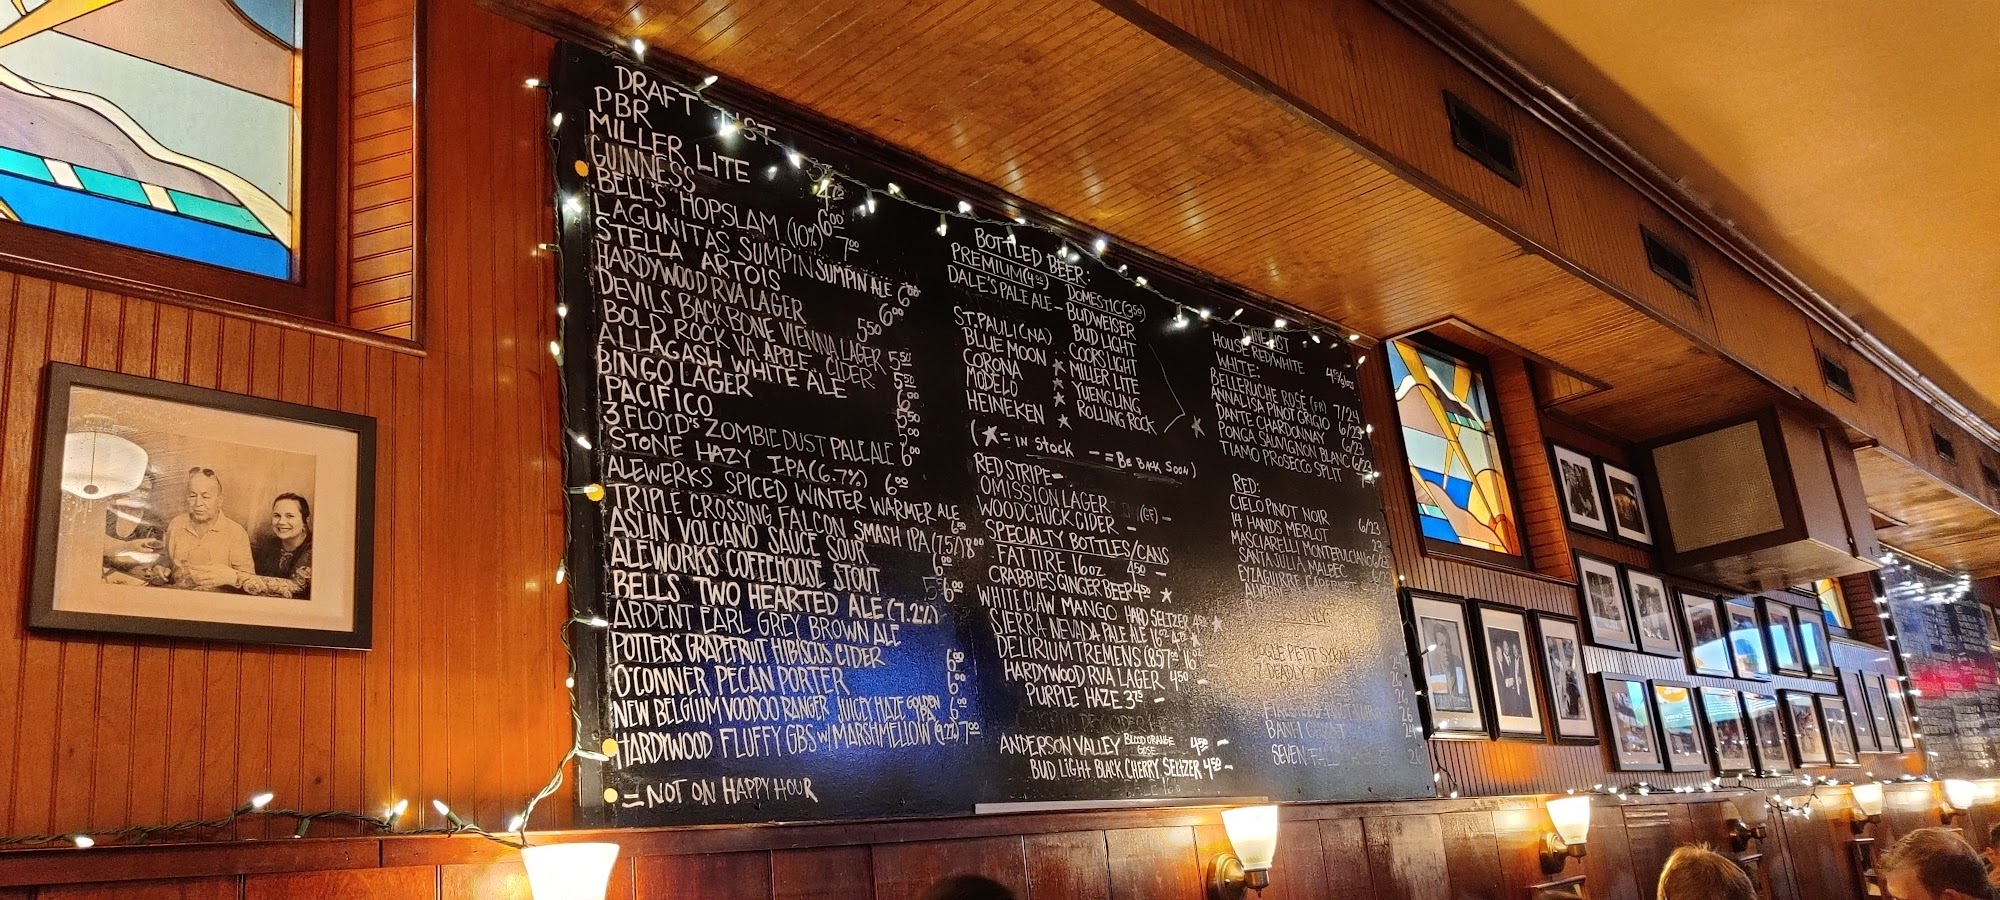 DRAFT LIST
PBR
MILLER LITE 4.75
GUINNESS 6.00
BELL'S HOPSLAM (10%) 7.00
LAGUNITAS SUMPIN SUMPIN ALE 6.00
STELLA ARTOIS 6.00
HARDYWOOD RVA LAGER 5.50
DEVILS BACKBONE VIENNA LAGER 5.50
BOLD ROCK VA APPLE CIDER 5.50
ALLAGASH WHITE ALE 6.00
BINGO LAGER 5.50
PACIFICO
3 FLOYD'S ZOMBIE DUST PALE ALE
STONE HAZY IPA (6.7%) 6.00
ALEWERKS SPICED WINTER WARMER ALE
TRIPLE CROSSING FALCON SMASH IPA (7.5%) 8.00
ASLIN VOLCANO SAUCE SOUR
ALEWORKS COFFEEHOUSE STOUT 6.00
BELLS TWO HEARTED ALE (7.2%)
ARDENT EARL GREY BROWN ALE
POTTER'S GRAPEFRUIT HIBISCUS CIDER 6.00
O'CONNER PECAN PORTER 6.00
NEW BELGIUM VOODOO RANGER JUICEY HAZE GOLDEN IPA 6.00
HARDYWOOD FLUFFY GBS W/ MARSHMELLOW (9.2%) 7.00
= NOT ON HAPPY HOUR
BOTTLED BEER:
PREMIUM (4.50)
DALE'S PALE ALE –
ST. PAULI (NA)
BLUE MOON ★
CORONA ★
MODELO ★
HEINEKEN ★
DOMESTIC (3.50)
BUDWEISER
BUD LIGHT
COORS LIGHT
MILLER LITE
YUENGLING
ROLLING ROCK ★
(★ = IN STOCK – = BE BACK SOON)
RED STRIPE –
OMISSION LAGER (GF) –
WOODCHUCK CIDER –
SPECIALTY BOTTLES/CANS
FAT TIRE 16oz 4.50 –
CRABBIES GINGER BEER 4.50 ★
WHITE CLAW MANGO HARD SELTZER ★
SIERRA NEVADA PALE ALE 16oz ★
DELIRIUM TREMENS (8.5) –
HARDYWOOD RVA LAGER 16oz 4.50 –
PURPLE HAZE 3.75 –
ANDERSON VALLEY BLOOD ORANGE GOSE 4.50 –
BUD LIGHT BLACK CHERRY SELTZER 4.50 –
WINE LIST
HOUSE RED/WHITE
WHITE:
BELLERUCHE ROSE (FR) 7/24
ANNALISA PINOT GRIGIO 6/23
DANTE CHARDONNAY 6/23
PONGA SAUVIGNON BLANC 6/23
TIAMO PROSECCO SPLIT
RED:
CIELO PINOT NOIR 6/23
14 HANDS MERLOT 23
MASCIARELLI MONTEPULCIANO 6/23
SANTA JULIA MALBEC
EYZAGUIRRE CABERNET